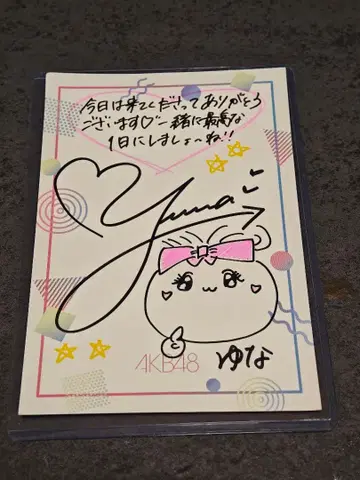 今日は来てくださってありがとう
ございます♡一緒に最高な
1日にしましょ〜ね!!
yuuna
AKB48
ゆな